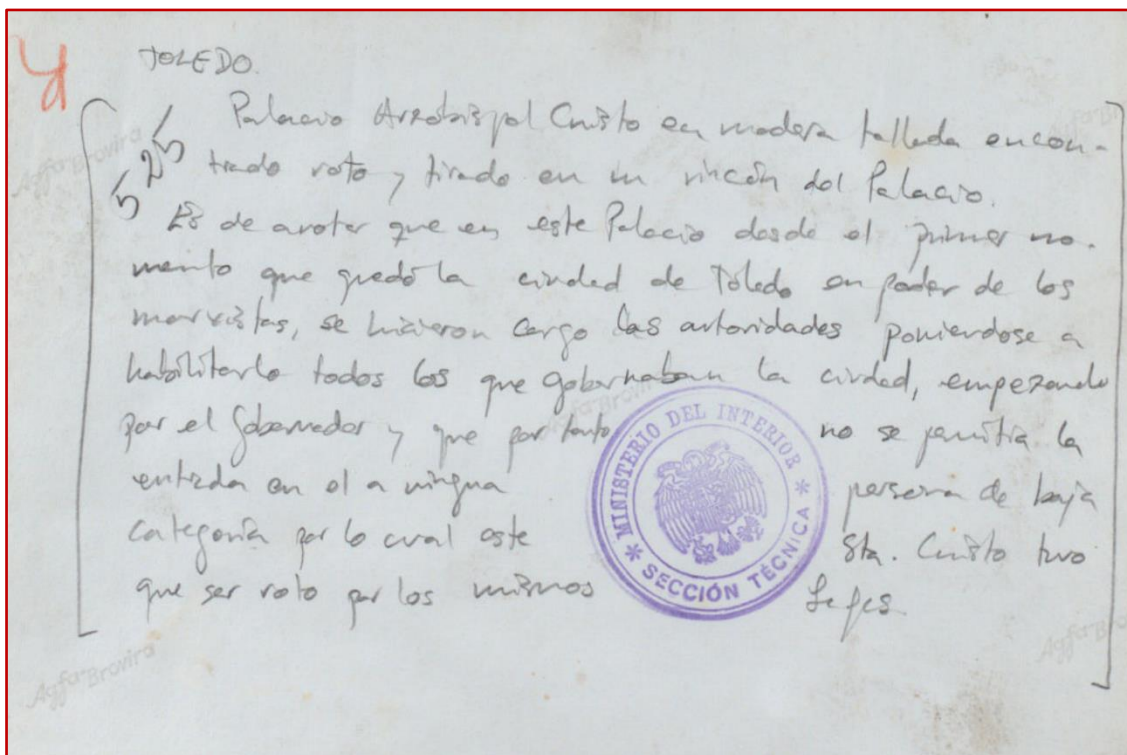 TOLEDO.
Palacio Arzobispal Cristo en madera tallada encon-
trado roto y tirado en un rincón del Palacio.
525
Es de anotar que en este Palacio desde el primer mo-
mento que quedó la ciudad de Toledo en poder de los
marxistas, se hicieron cargo las autoridades poniendose a
habilitarlo todos los que gobernaban la ciudad, empezando
por el Gobernador y que por tanto no se permitia la
entrada en el a ningua persona de baja
categoría por lo cual este Sto. Cristo tuvo
que ser roto por los mismos Jefes.
MINISTERIO DEL INTERIOR
SECCIÓN TÉCNICA
Agfa-Brovira
Agfa-Brovira
Agfa-Brovira